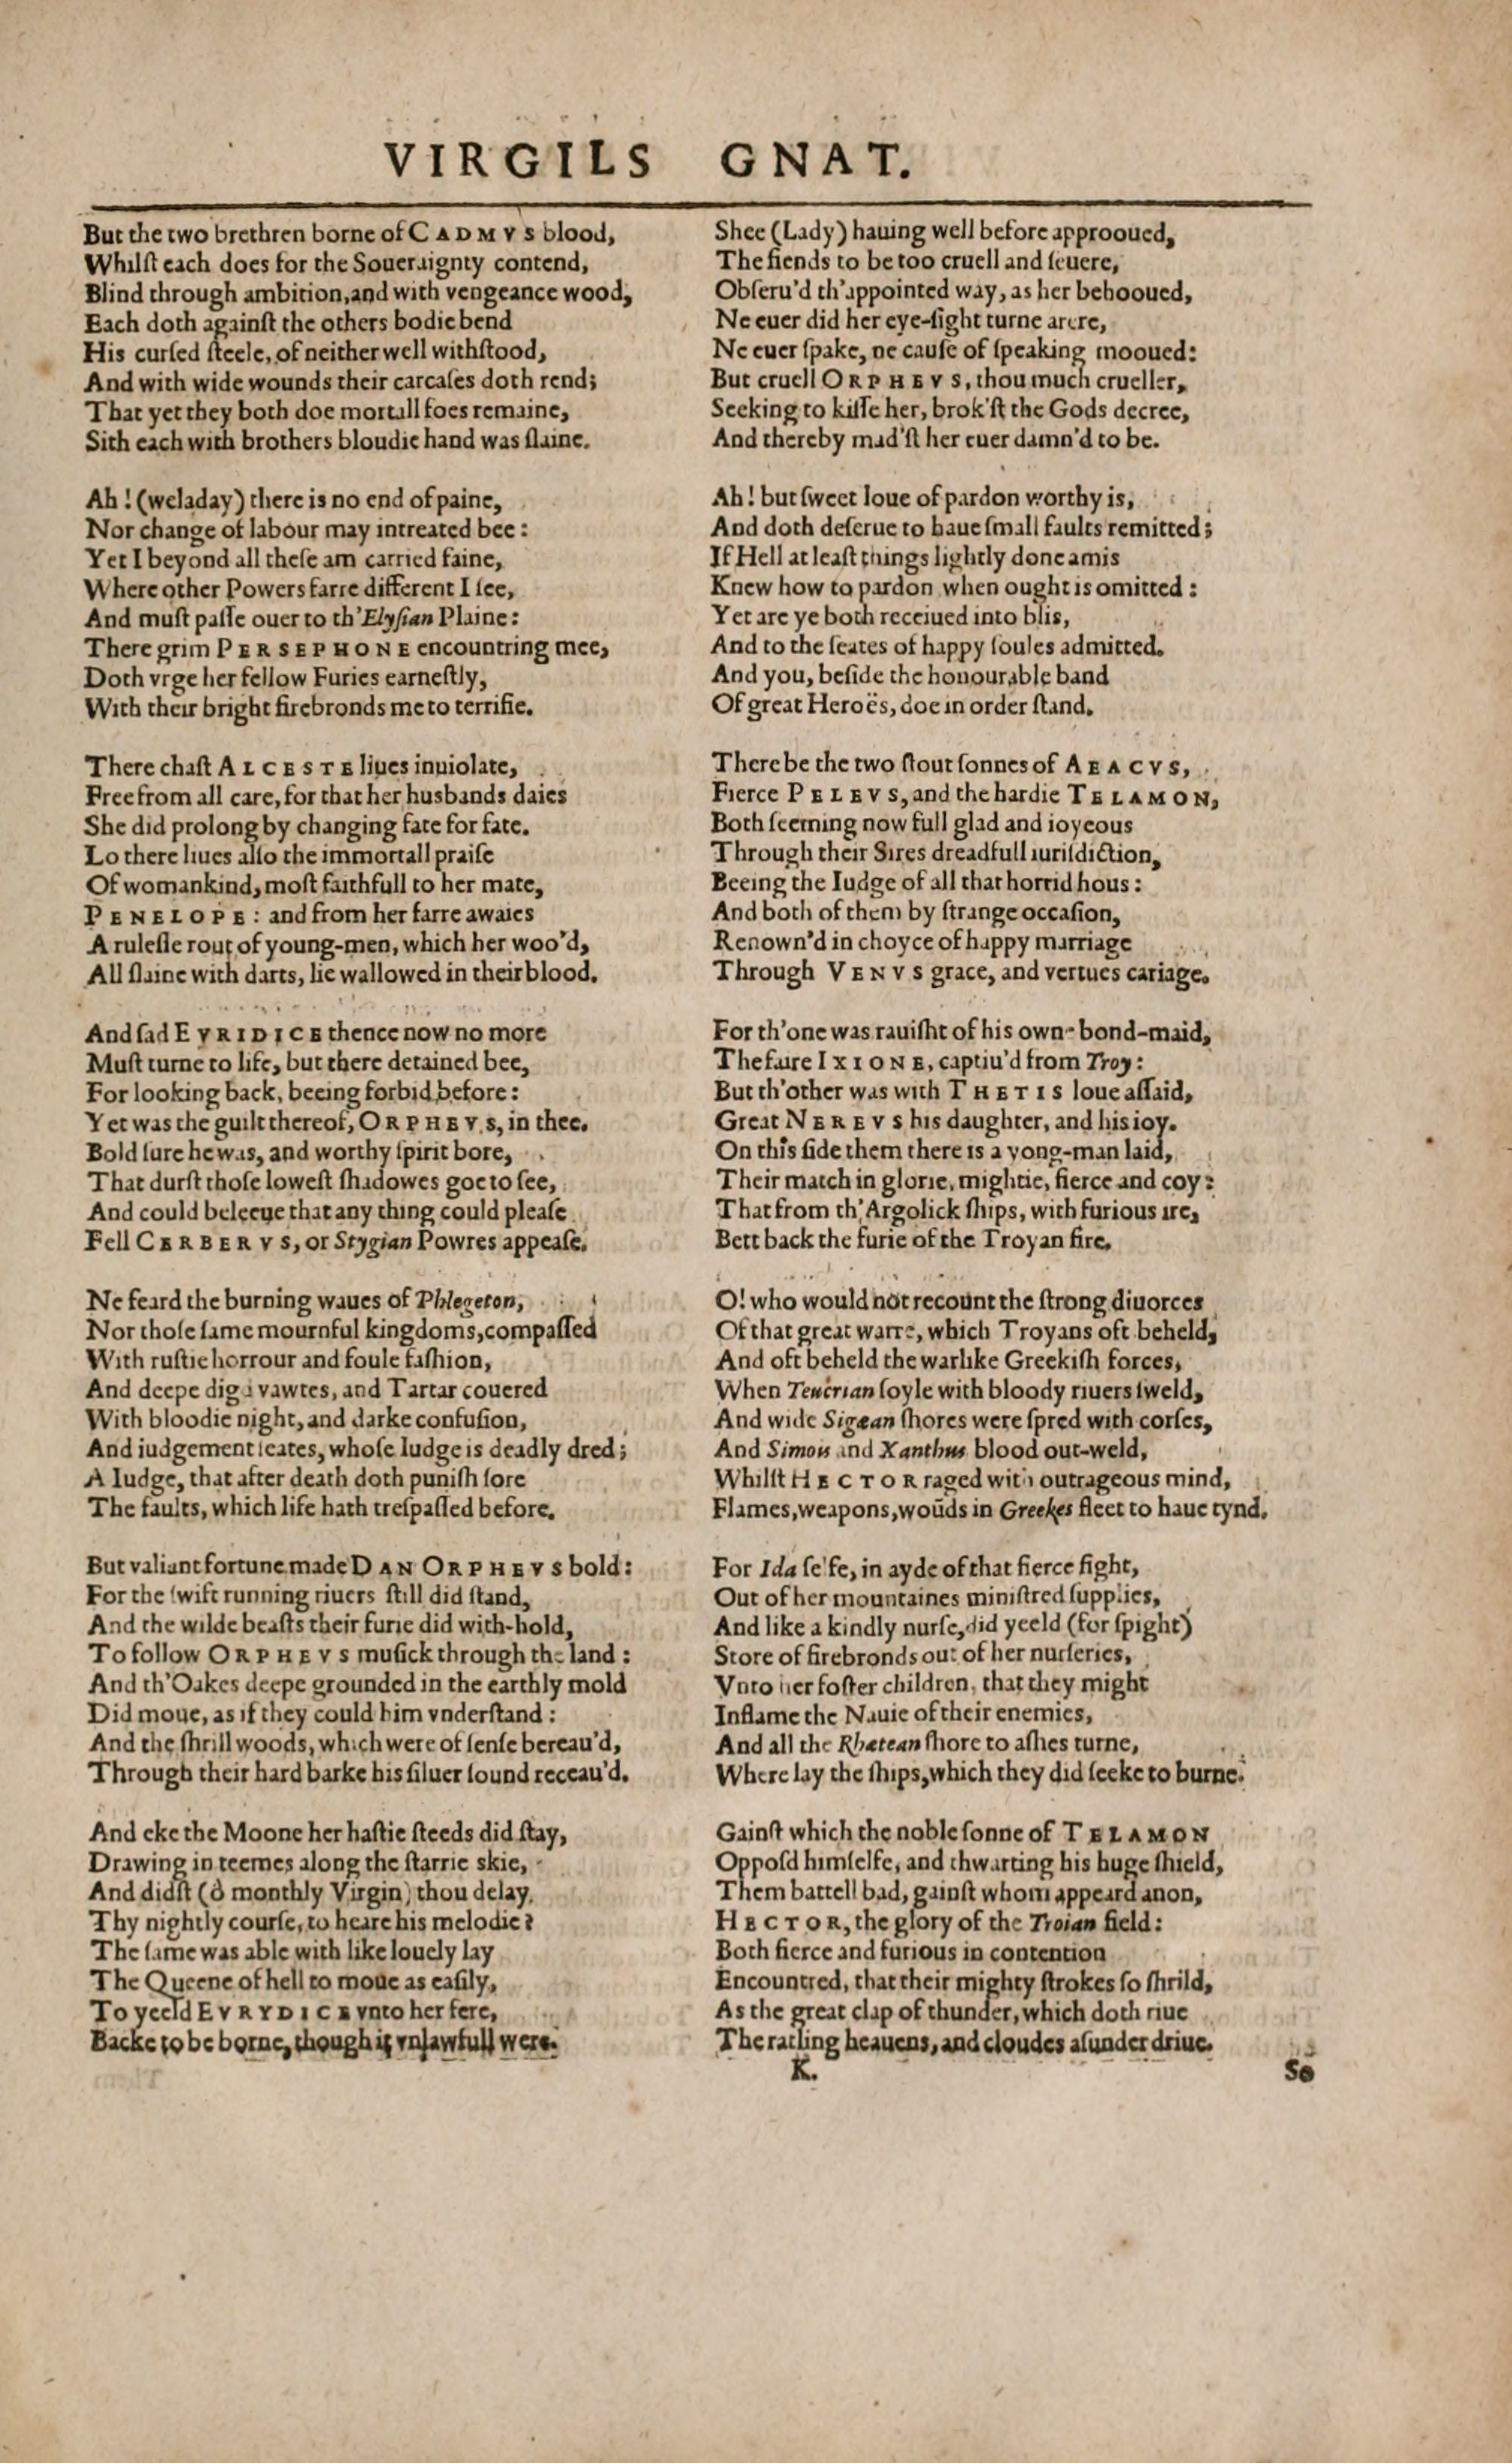 VIRGILS GNAT.
But the two brethren borne of CADMVS blood,
Whilſt each does for the Soueraignty contend,
Blind through ambition, and with vengeance wood,
Each doth againſt the others bodie bend
His curſed ſteele, of neither well withſtood,
And with wide wounds their carcaſes doth rend;
That yet they both doe mortall foes remaine,
Sith each with brothers bloudie hand was ſlaine.
Ah! (weladay) there is no end of paine,
Nor change of labour may intreated bee:
Yet I beyond all theſe am carried faine,
Where other Powers farre different I ſee,
And muſt paſſe ouer to th'Elyſian Plaine:
There grim PERSEPHONE encountring mee,
Doth vrge her fellow Furies earneſtly,
With their bright firebronds me to terrifie.
There chaſt ALCESTE liues inuiolate,
Free from all care, for that her husbands daies
She did prolong by changing fate for fate.
Lo there liues alſo the immortall praiſe
Of womankind, moſt faithfull to her mate,
PENELOPE: and from her farre awaies
A ruleſſe rout of young-men, which her woo'd,
All ſlaine with darts, lie wallowed in their blood.
And ſad EVRIDICE thence now no more
Muſt turne to life, but there detained bee,
For looking back, beeing forbid before:
Yet was the guilt thereof, ORPHEVS, in thee.
Bold ſure he was, and worthy ſpirit bore,
That durſt thoſe loweſt ſhadowes goe to ſee,
And could beleeue that any thing could pleaſe
Fell CERBERVS, or Stygian Powres appeaſe.
Ne feard the burning waues of Phlegeton,
Nor thoſe ſame mournful kingdoms, compaſſed
With ruſtie horrour and foule faſhion,
And deepe digd vawtes, and Tartar couered
With bloodie night, and darke confuſion,
And iudgement ſeates, whoſe Iudge is deadly dred;
A Iudge, that after death doth puniſh ſore
The faults, which life hath treſpaſſed before.
But valiant fortune made DAN ORPHEVS bold:
For the ſwift running riuers ſtill did ſtand,
And the wilde beaſts their furie did with-hold,
To follow ORPHEVS muſick through the land:
And th'Oakes deepe grounded in the earthly mold
Did moue, as if they could him vnderſtand:
And the ſhrill woods, which were of ſenſe bereau'd,
Through their hard barke his ſiluer ſound receau'd.
And eke the Moone her haſtie ſteeds did ſtay,
Drawing in teemes along the ſtarrie skie,
And didſt (ô monthly Virgin) thou delay
Thy nightly courſe, to heare his melodie?
The ſame was able with like louely lay
The Queene of hell to moue as eaſily,
To yeeld EVRYDICE vnto her fere,
Backe to be borne, though it vnlawfull were.
Shee (Lady) hauing well before approoued,
The fiends to be too cruell and ſeuere,
Obſeru'd th'appointed way, as her behooued,
Ne euer did her eye-ſight turne arere,
Ne euer ſpake, ne cauſe of ſpeaking mooued:
But cruell ORPHEVS, thou much crueller,
Seeking to kiſſe her, brok'ſt the Gods decree,
And thereby mad'ſt her euer damn'd to be.
Ah! but ſweet loue of pardon worthy is,
And doth deſerue to haue ſmall faults remitted;
If Hell at leaſt things lightly done amis
Knew how to pardon when ought is omitted:
Yet are ye both receiued into blis,
And to the ſeates of happy ſoules admitted.
And you, beſide the honourable band
Of great Heroës, doe in order ſtand.
There be the two ſtout ſonnes of AEACVS,
Fierce PELEVS, and the hardie TELAMON,
Both ſeeming now full glad and ioyeous
Through their Sires dreadfull iuriſdiction,
Beeing the Iudge of all that horrid hous:
And both of them by ſtrange occaſion,
Renown'd in choyce of happy marriage
Through VENVS grace, and vertues cariage.
For th'one was rauiſht of his own-bond-maid,
The faire IXIONE, captiu'd from Troy:
But th'other was with THETIS loue aſſaid,
Great NEREVS his daughter, and his ioy.
On this ſide them there is a yong-man laid,
Their match in glorie, mightie, fierce and coy:
That from th'Argolick ſhips, with furious ire,
Bett back the furie of the Troyan fire.
O! who would not recount the ſtrong diuorces
Of that great warre, which Troyans oft beheld,
And oft beheld the warlike Greekiſh forces,
When Teucrian ſoyle with bloody riuers ſweld,
And wide Sigæan ſhores were ſpred with corſes,
And Simois and Xanthus blood out-weld,
Whilſt HECTOR raged with outrageous mind,
Flames, weapons, woũds in Greekes fleet to haue tynd.
For Ida ſelfe, in ayde of that fierce fight,
Out of her mountaines miniſtred ſupplies,
And like a kindly nurſe, did yeeld (for ſpight)
Store of firebronds out of her nurſeries,
Vnto her foſter children, that they might
Inflame the Nauie of their enemies,
And all the Rhætean ſhore to aſhes turne,
Where lay the ſhips, which they did ſeeke to burne.
Gainſt which the noble ſonne of TELAMON
Oppoſd himſelfe, and thwarting his huge ſhield,
Them battell bad, gainſt whom appeard anon,
HECTOR, the glory of the Troian field:
Both fierce and furious in contention
Encountred, that their mighty ſtrokes ſo ſhrild,
As the great clap of thunder, which doth riue
The ratling heauens, and cloudes aſunder driue.
K.
So